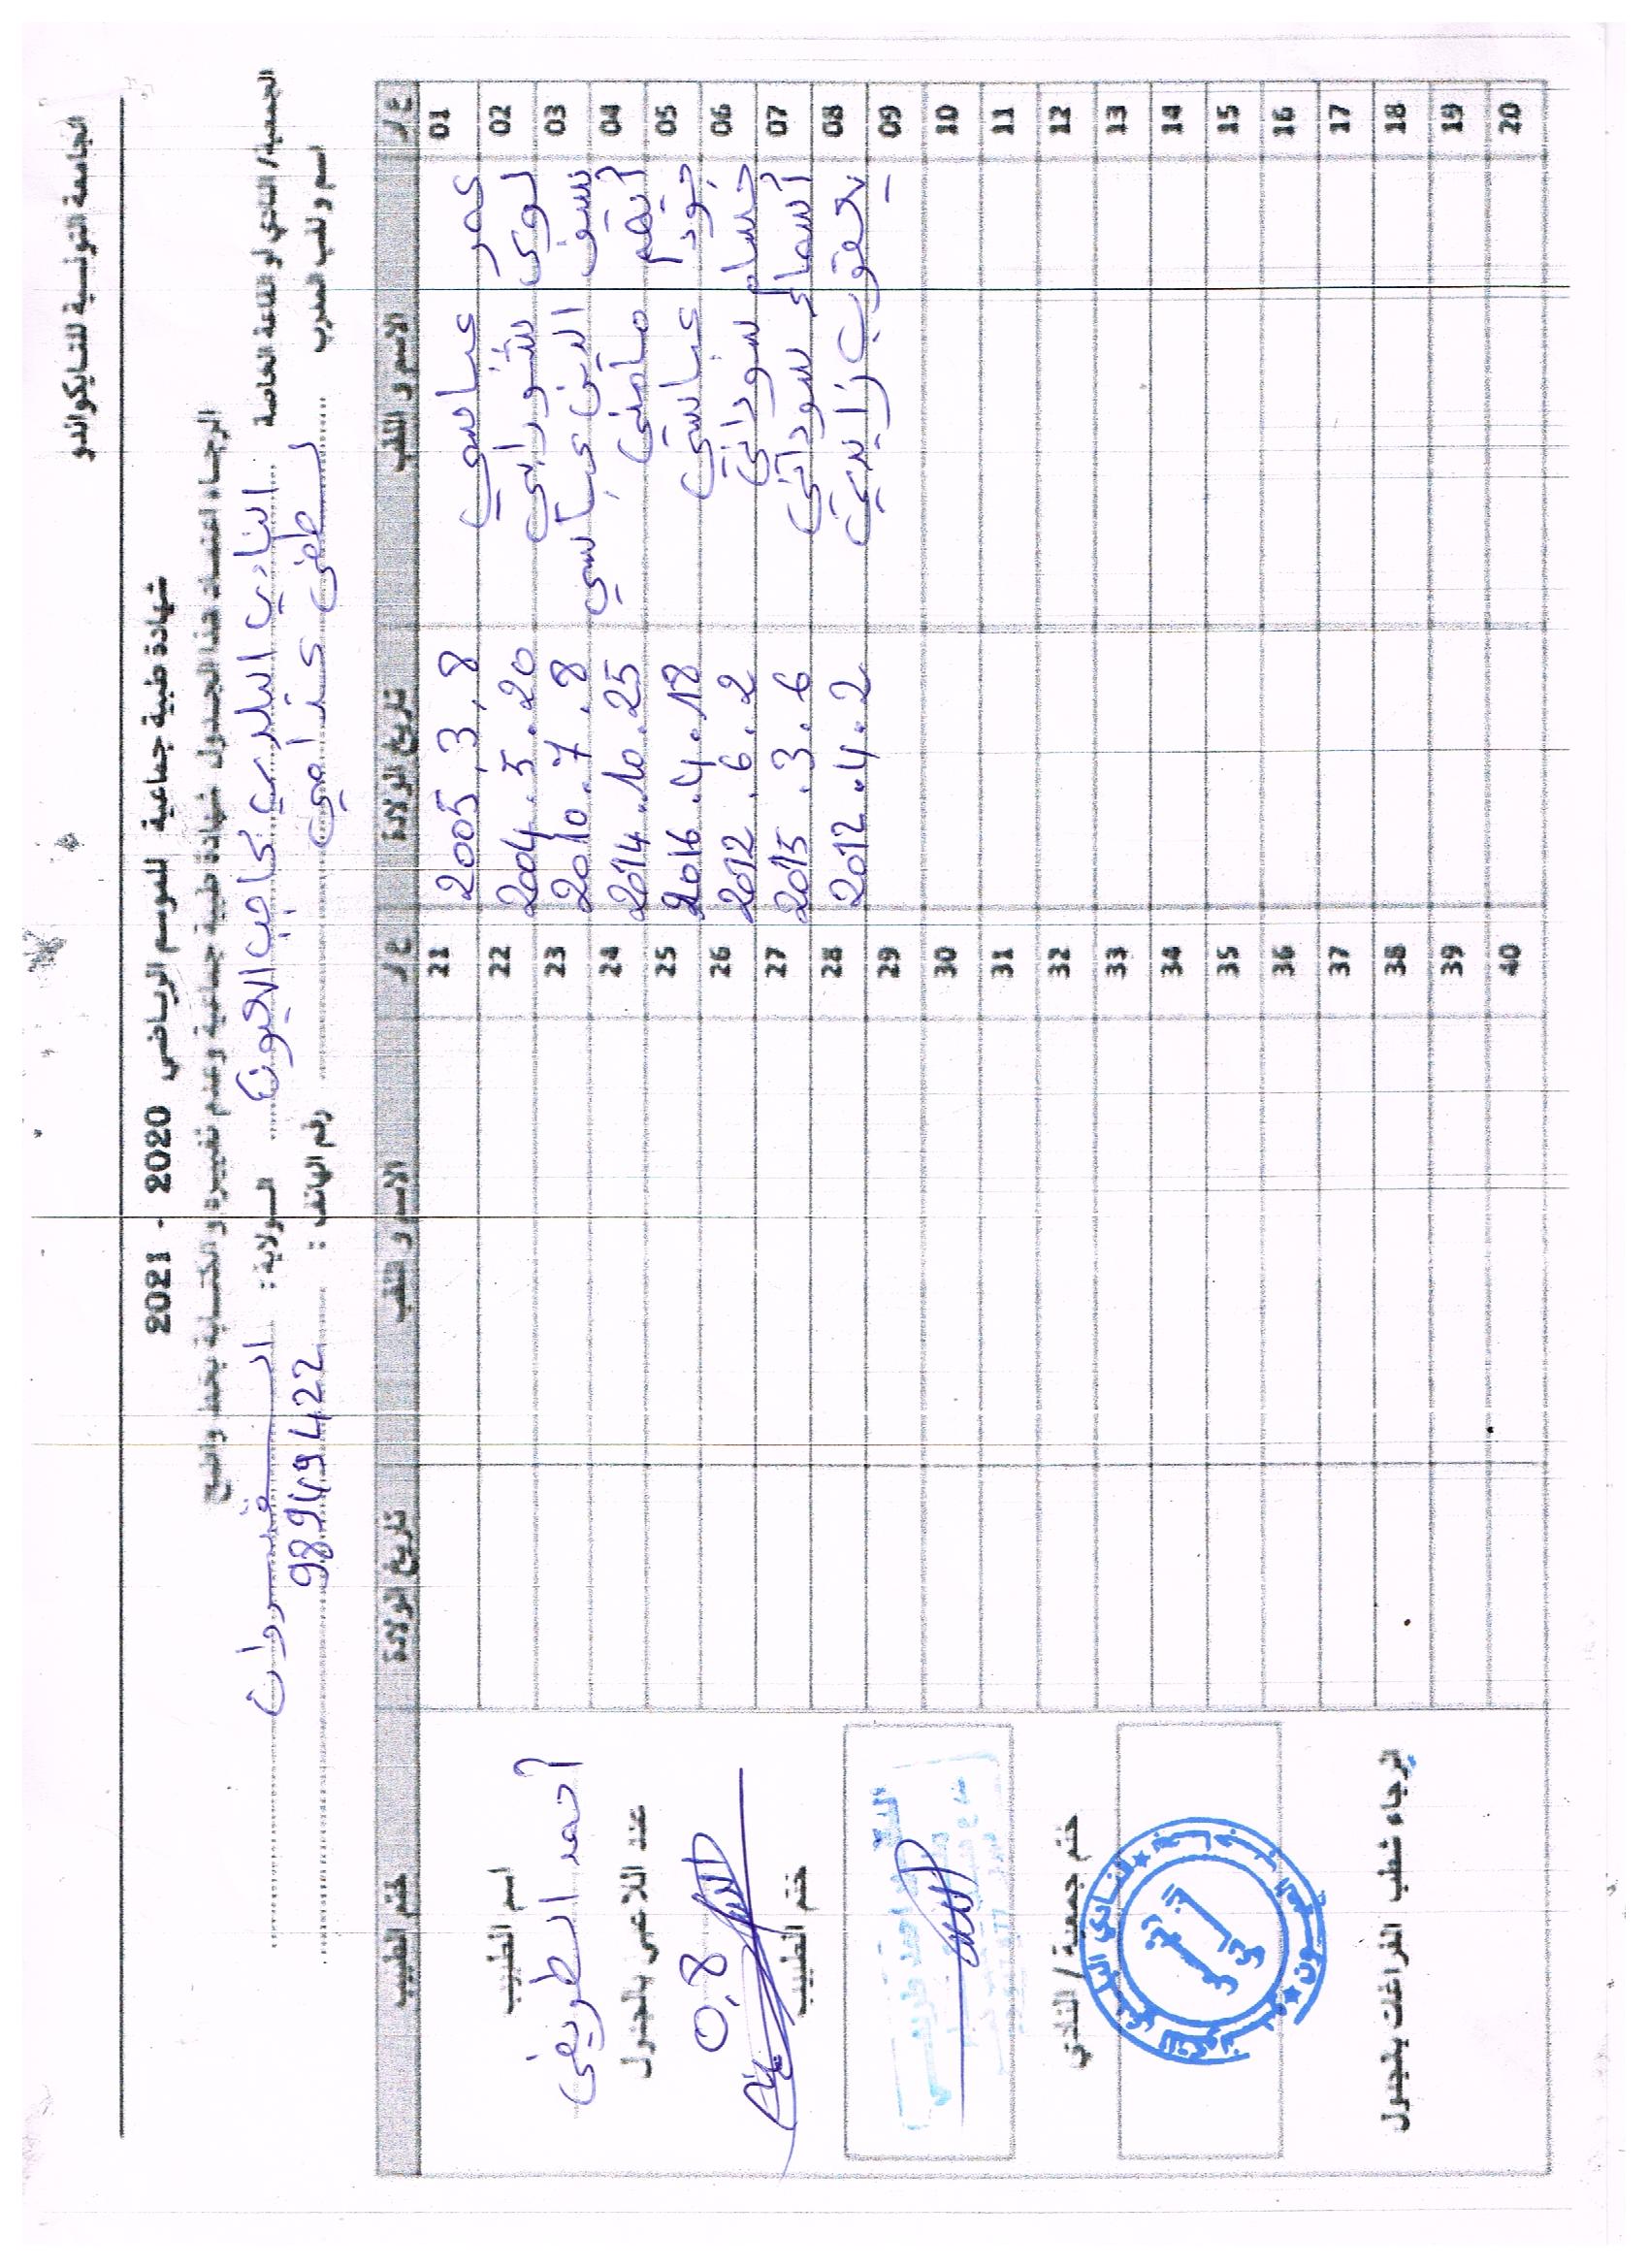 الجامعة التونسية للتايكواندو
شهادة طبية جماعية للموسم الرياضي 2020 - 2021
الرجاء اعتماد هذا الجدول شهادة طبية جماعية وعدم تغييره و الكتابة بخط واضح
الجمعية/ النادي أو القاعة الخاصة النادي البلدي بحاجب العيون الولاية : القيروان
اسم و لقب المدرب لطفي عذامي رقم الهاتف : 98949422
ع/ر الاسم و اللقب تاريخ الولادة ع/ر الاسم و اللقب تاريخ الولادة ختم الطبيب
01 عمر عباسي 2005.3.8 21
02 لؤي شورابي 2004.5.20 22
03 سيف الدين عباسي 2010.7.8 23
04 2014.10.25 24
05 عباسي 2016.4.18 25
06 حسام سوداني 2012.6.2 26
07 سوداني 2015.3.6 27
08 يعقوب زايدي 2012.4.2 28
09 - 29
10 30
11 31
12 32
13 33
14 34
15 35
16 36
17 37
18 38
19 39
20 40
اسم الطبيب
أحمد الطريفي
عدد اللاعبي بالجدول
0,8
ختم الطبيب
ختم جمعية / النادي
الرجاء شطب الفراغات بالجدول